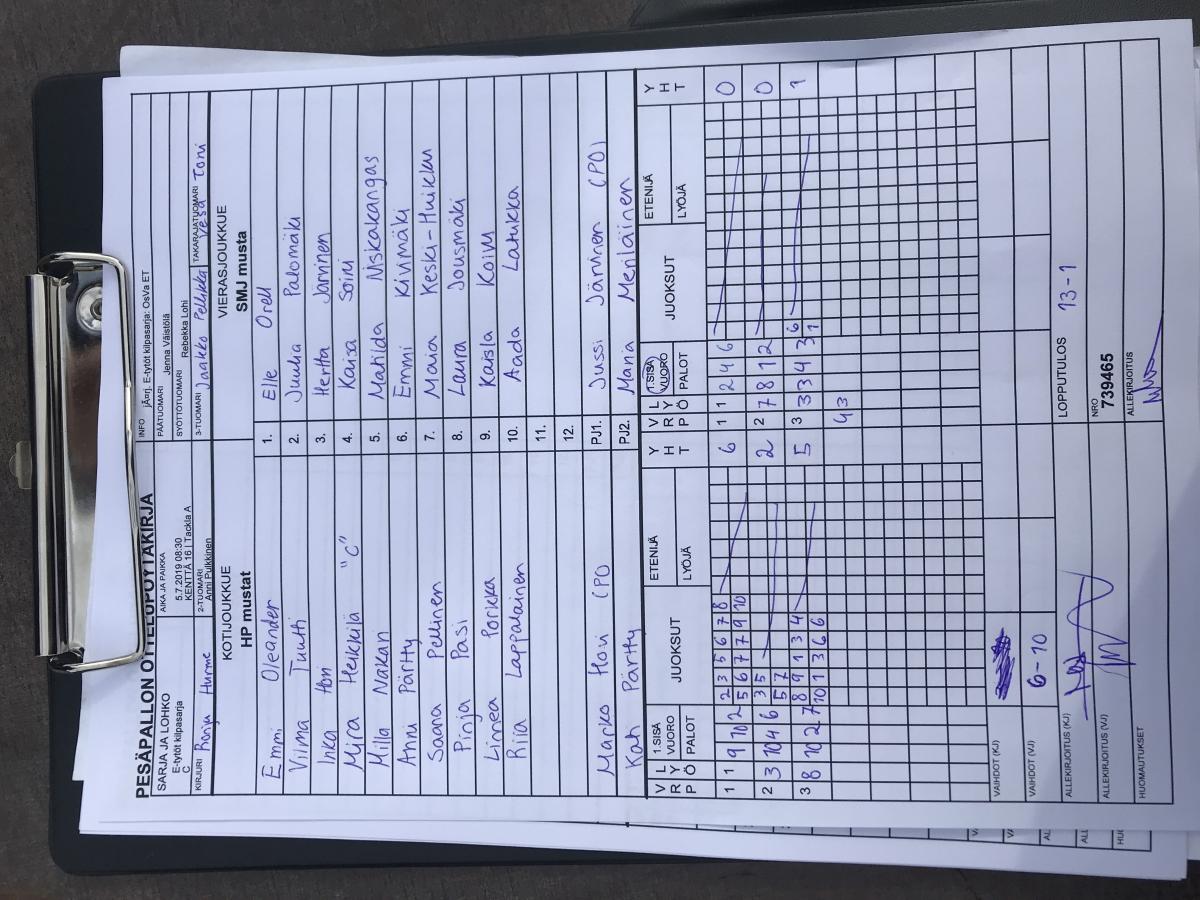 PESÄPALLON OTTELUPÖYTÄKIRJA
INFO jÄ¤rj. E-tytöt kilpasarja: OsVa ET
SARJA JA LOHKO
E-tytöt kilpasarja
C
AIKA JA PAIKKA
5.7.2019 08:30
KENTTÄ 16 | Tackla A
PÄÄTUOMARI Jenna Väistölä
SYÖTTÖTUOMARI Rebekka Lohi
KIRJURI Ronja Hurme
2-TUOMARI Anni Pulkkinen
3-TUOMARI Jaakko Pellikka
TAKARAJATUOMARI Vesa Toni
KOTIJOUKKUE
HP mustat
VIERASJOUKKUE
SMJ musta
Emmi Oleander 1. Elle Orell
Vilma Tuutti 2. Juulia Palomäki
Inka Hovi 3. Hertta Järvinen
Mira Heikkilä "C" 4. Kaisa Soini
Milla Nakari 5. Matilda Niskakangas
Anni Pärtty 6. Emmi Kivimäki
Saana Pellinen 7. Maia Keski-Huikku
Pinja Pasi 8. Laura Jousmäki
Linnea Porkka 9. Kaisla Koivu
Riia Lappalainen 10. Aada Latukka
11.
12.
Marko Hovi (PJ) PJ1. Jussi Järvinen (PJ)
Kati Pärtty PJ2. Maria Meriläinen
V R P L Y Ö 1.SISÄ VUORO PALOT JUOKSUT ETENIJÄ LYÖJÄ Y H T V R P L Y Ö 1.SISÄ VUORO PALOT JUOKSUT ETENIJÄ LYÖJÄ Y H T
1 1 9 10 2 2 3 5 6 7 8 6 1 1 2 4 6 0
5 6 7 7 9 10
2 3 10 4 6 3 5 2 2 7 8 1 2 0
5 7
3 8 10 2 7 8 9 1 3 4 5 3 3 3 4 3 6 1
10 1 3 6 6 1
4 3
VAIHDOT (KJ)
VAIHDOT (VJ) 6-10
LOPPUTULOS 13-1
ALLEKIRJOITUS (KJ)
NRO
739465
ALLEKIRJOITUS (VJ)
ALLEKIRJOITUS
HUOMAUTUKSET